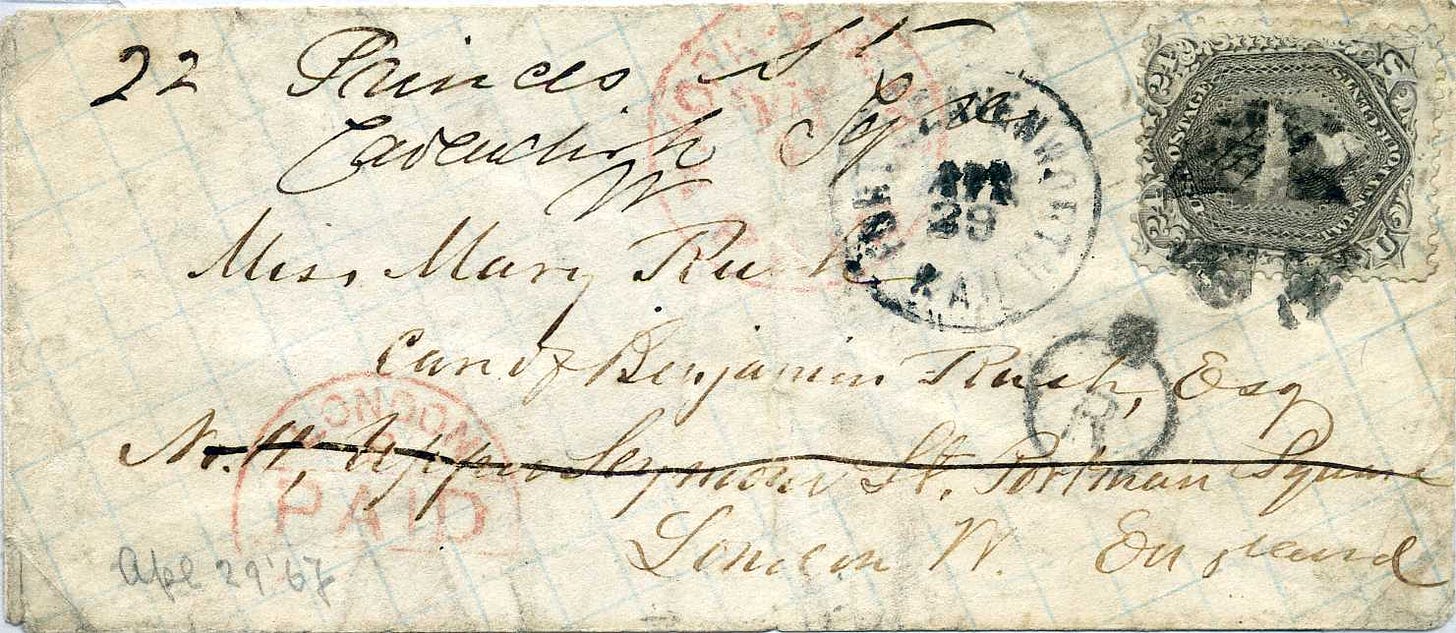 22 Princes St
Cavendish Sqre
W
Miss Mary Rush
Care of Benjamin Rush, Esq
No. 11, Upper Seymour St. Portman Square
London W. England
Apl 29 '67
FORT LEAVENWORTH
APR
29
KAN
LONDON
PAID
U.S. POSTAGE
24 CENTS